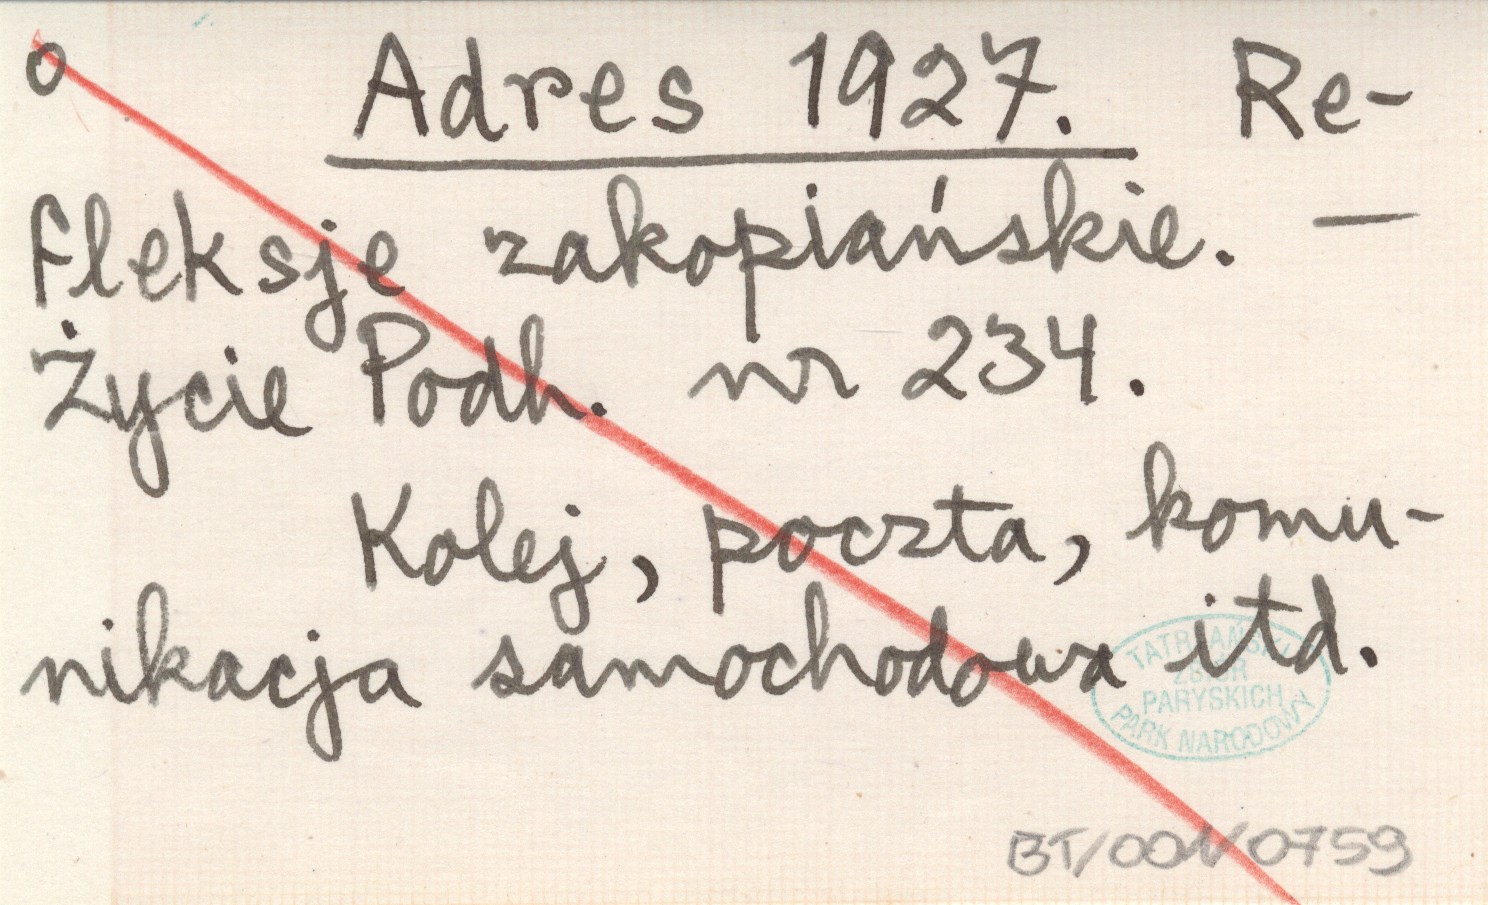 o Adres 1927. Re-
fleksje zakopiańskie. —
Życie Podh. nr 234.
Kolej, poczta, komu-
nikacja samochodowa itd.
TATRZAŃSKI
ZBIÓR
PARYSKICH
PARK NARODOWY
BT/001/0759